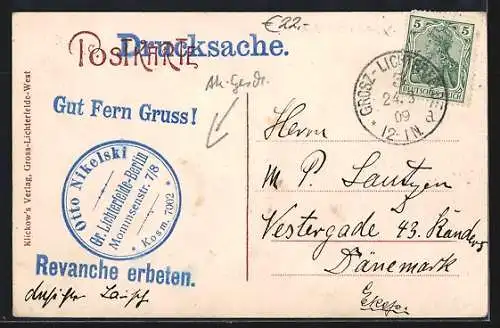 €22.-
Drucksache.
POSTKARTE
5
DEUTSCHES REICH
GROSZ-LICHTERFELDE
24. 3
09
* 12-1 N.
Gut Fern Gruss!
Otto Nikelski
Gr. Lichterfelde-Berlin
Mommsenstr. 7/8
* Kosm. 7002 *
Revanche erbeten.
Klickow's Verlag, Gross-Lichterfelde-West
Herrn
M P. Lautzen
Vestergade 43. Randers
Dänemark